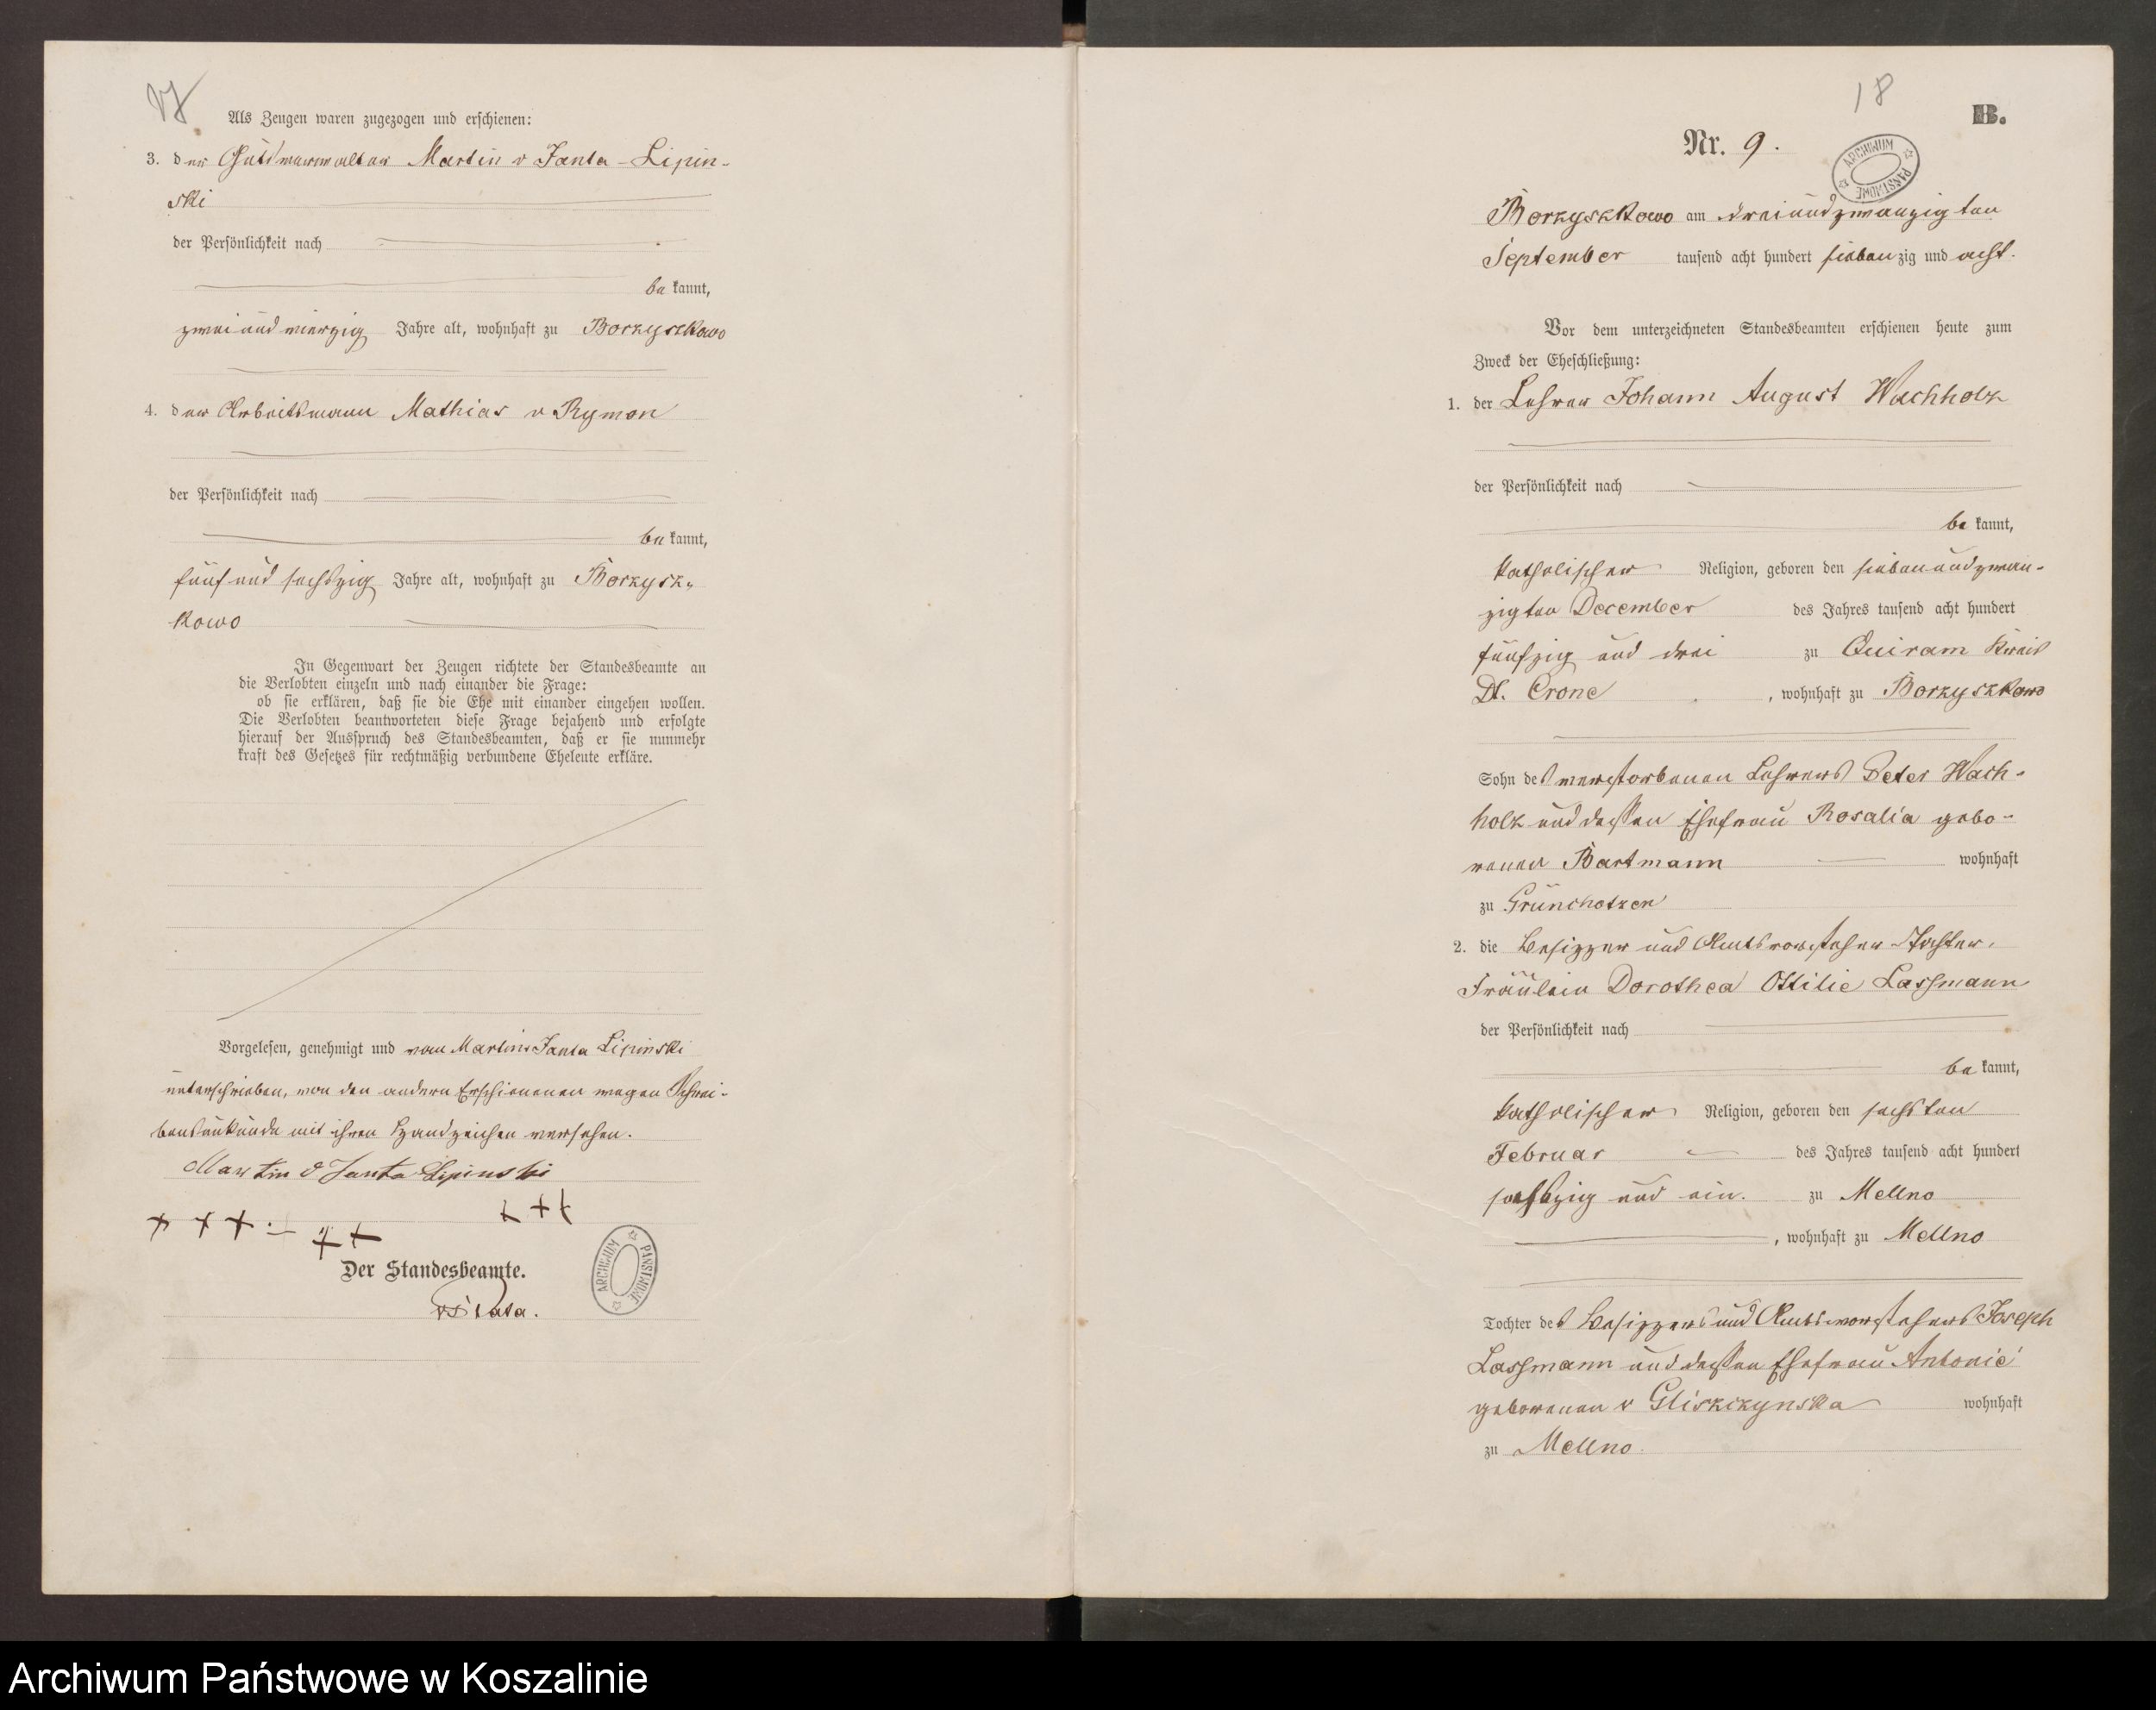 17
Als Zeugen waren zugezogen und erschienen:
3. der Gutsverwalter Martin v Janta-Lipin-
ski
der Persönlichkeit nach
be kannt,
zweiundvierzig Jahre alt, wohnhaft zu Borzyszkowo
4. der Arbeitsmann Mathias v Rymon
der Persönlichkeit nach
be kannt,
fünf und sechszig Jahre alt, wohnhaft zu Borzysz-
kowo
In Gegenwart der Zeugen richtete der Standesbeamte an
die Verlobten einzeln und nach einander die Frage:
ob sie erklären, daß sie die Ehe mit einander eingehen wollen.
Die Verlobten beantworteten diese Frage bejahend und erfolgte
hierauf der Ausspruch des Standesbeamten, daß er sie nunmehr
kraft des Gesetzes für rechtmäßig verbundene Eheleute erkläre.
Vorgelesen, genehmigt und von Martin v Janta Lipinski
unterschrieben, von den andern Erschienenen wegen Schrei-
bensunkunde mit ihren Handzeichen versehen.
Martin v Janta Lipinski
+ + + + + + + +
Der Standesbeamte.
ARCHIWUM PAŃSTWOWE
18
B.
Nr. 9.
ARCHIWUM PAŃSTWOWE
Borzyszkowo am dreiundzwanzigten
September tausend acht hundert siebenzig und acht.
Vor dem unterzeichneten Standesbeamten erschienen heute zum
Zweck der Eheschließung:
1. der Lehrer Johann August Wachholz
der Persönlichkeit nach
be kannt,
katholischer Religion, geboren den siebenundzwan-
zigten December des Jahres tausend acht hundert
fünfzig und drei zu Quiram Kreis
Dt. Crone, wohnhaft zu Borzyszkowo
Sohn des verstorbenen Lehrers Peter Wach-
holz und dessen Ehefrau Rosalia gebo-
renen Bartmann wohnhaft
zu Grünchotzen
2. die Besitzer und Amtsvorsteher Tochter,
Fräulein Dorothea Ottilie Lassmann
der Persönlichkeit nach
be kannt,
katholischer Religion, geboren den sechsten
Februar des Jahres tausend acht hundert
sechszig und ein. zu Mellno
, wohnhaft zu Mellno
Tochter des Besitzers und Amtsvorstehers Joseph
Lassmann und dessen Ehefrau Antonie
geborenen v Gliszczynska wohnhaft
zu Mellno.
Archiwum Państwowe w Koszalinie